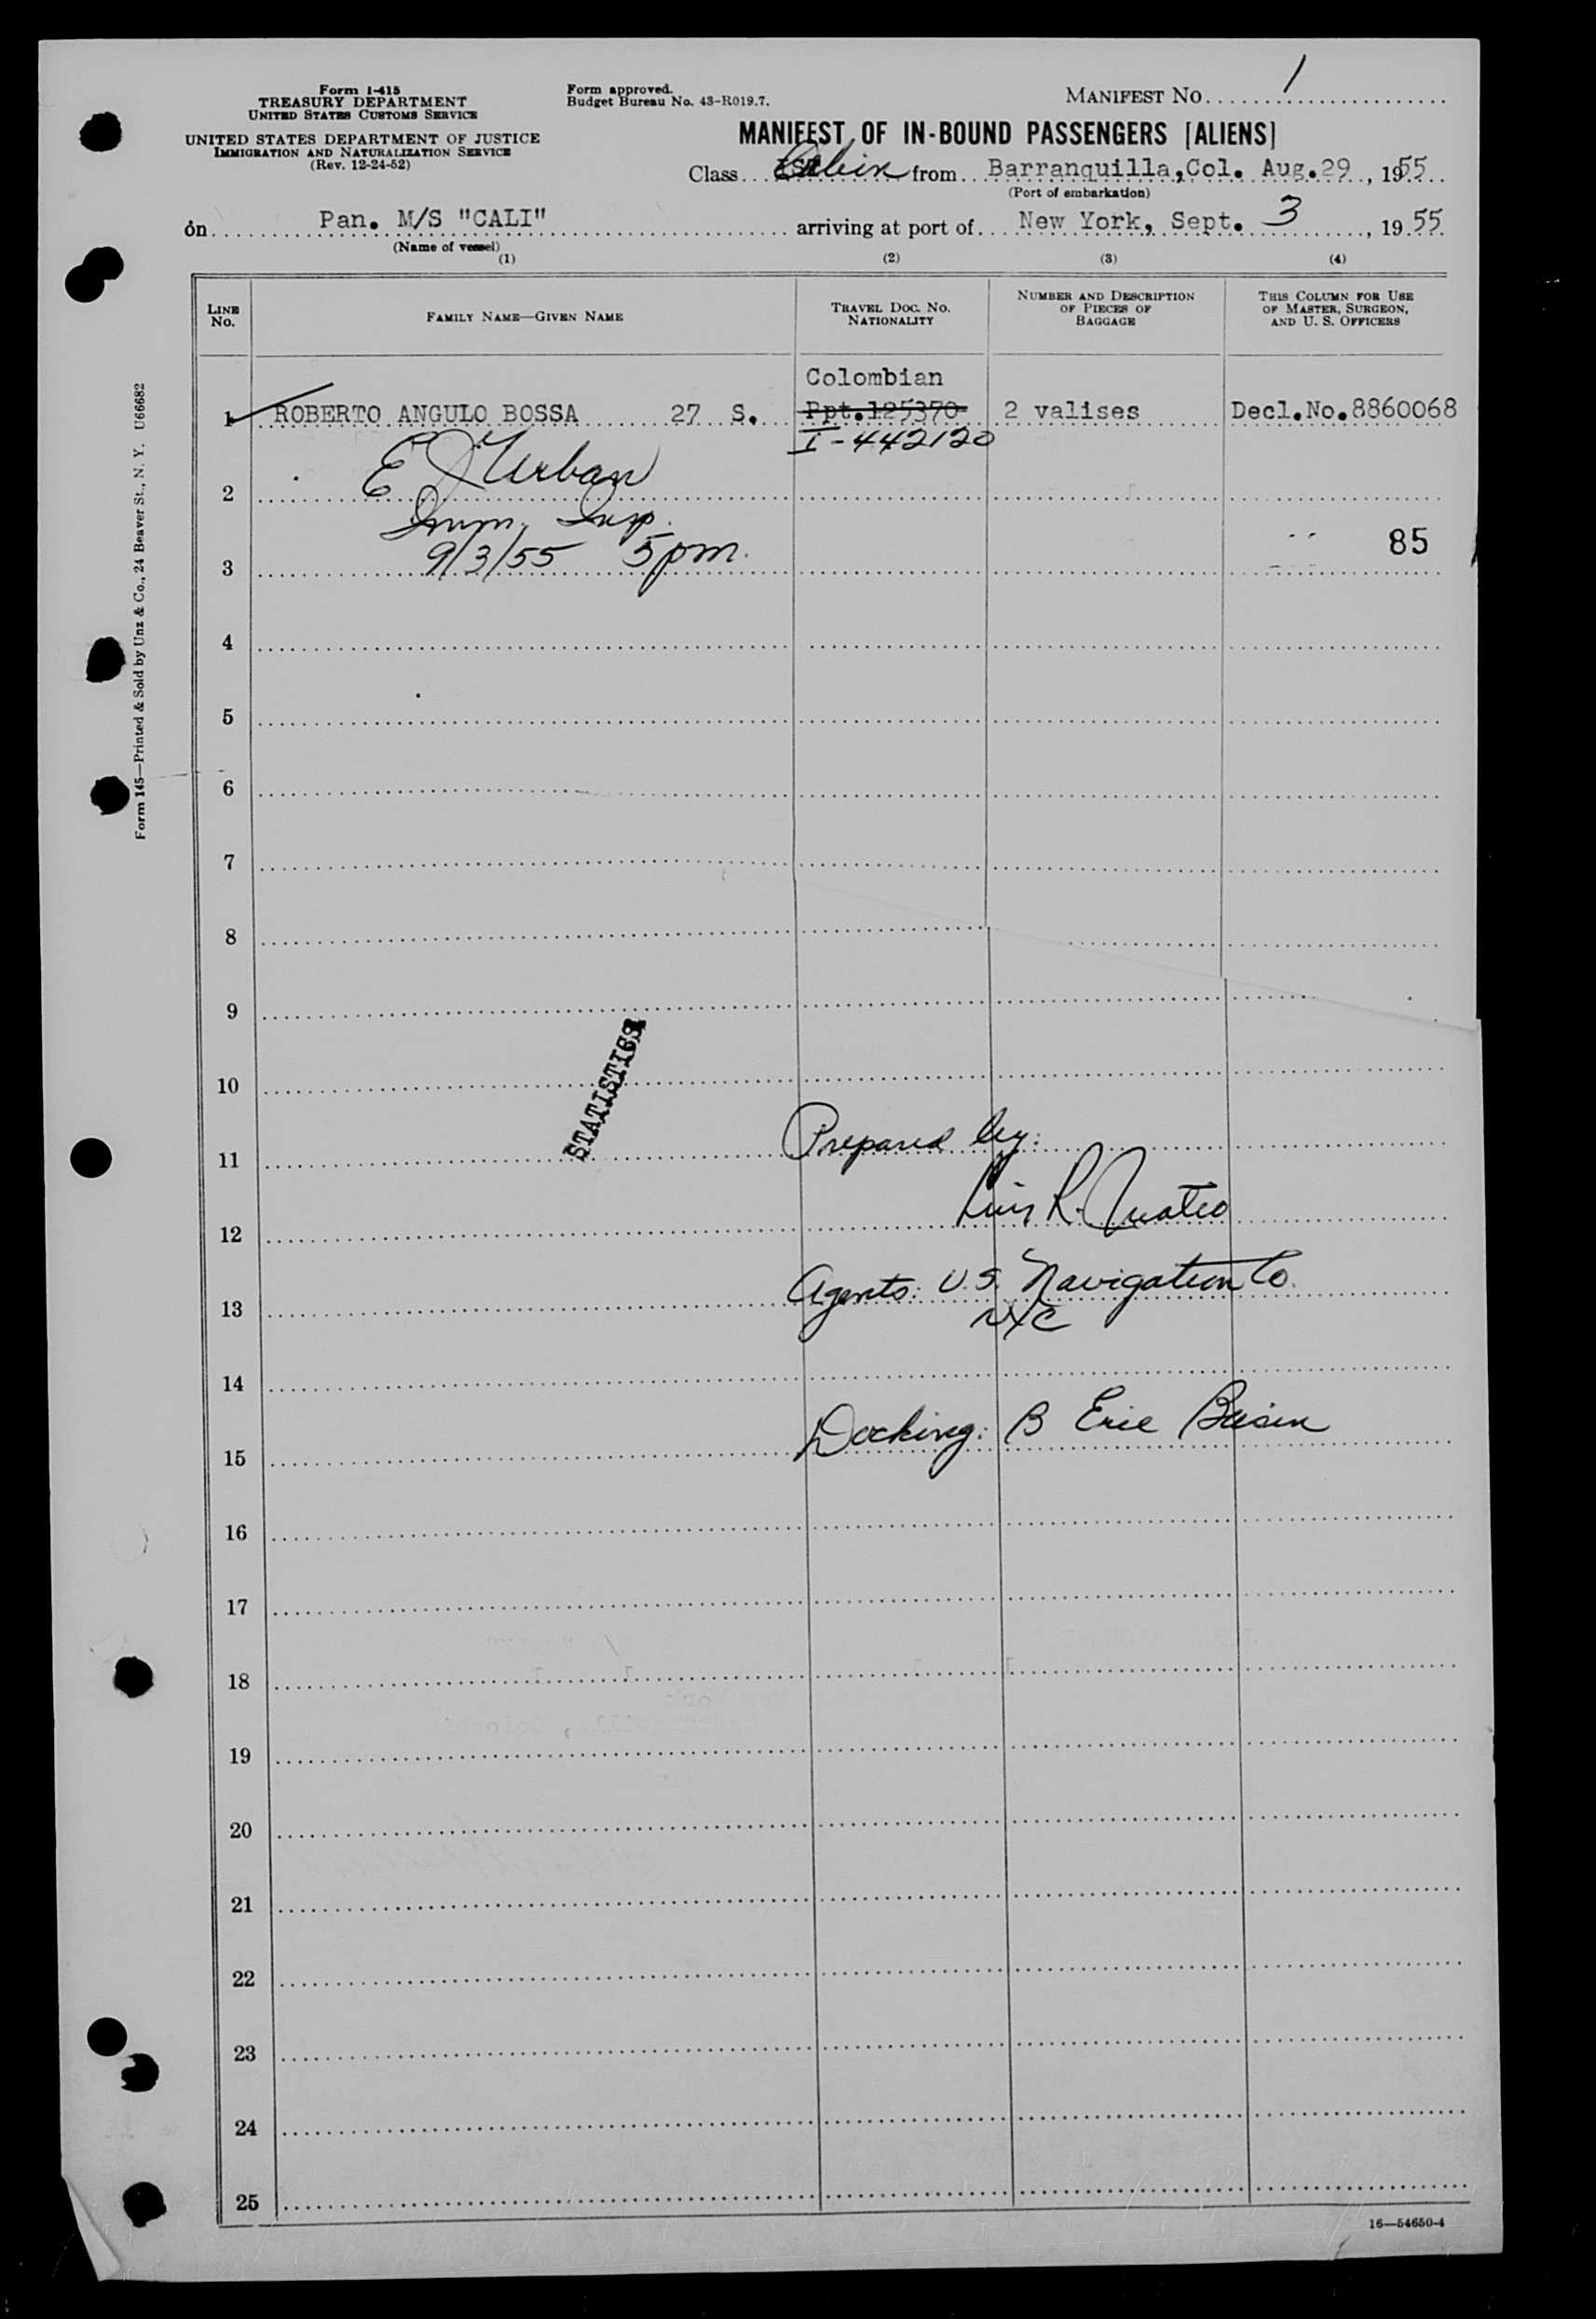 Form I-415
TREASURY DEPARTMENT
UNITED STATES CUSTOMS SERVICE
UNITED STATES DEPARTMENT OF JUSTICE
IMMIGRATION AND NATURALIZATION SERVICE
(Rev. 12-24-52)
Form approved.
Budget Bureau No. 43-R019.7.
MANIFEST No. 1
MANIFEST OF IN-BOUND PASSENGERS [ALIENS]
Class Cabin from Barranquilla,Col. Aug.29, 1955
(Port of embarkation)
on Pan. M/S "CALI" arriving at port of New York, Sept. 3, 1955
(Name of vessel)
(1) (2) (3) (4)
LINE No. FAMILY NAME—GIVEN NAME TRAVEL DOC. NO. NATIONALITY NUMBER AND DESCRIPTION OF PIECES OF BAGGAGE THIS COLUMN FOR USE OF MASTER, SURGEON, AND U. S. OFFICERS
Colombian
1 ROBERTO ANGULO BOSSA 27 S. Ppt.125370 2 valises Decl.No.8860068
I-442120
E J Urban
2
Imm. Insp.
85
9/3/55 5pm.
3
4
5
6
7
8
9
10
STATISTICS
Prepared by:
11
Luis R.
12
Agents: U.S. Navigation Co.
13
NYC
14
Docking: B Erie Basin
15
16
17
18
19
20
21
22
23
24
25
16—54650-4
Form 145—Printed & Sold by Unz & Co., 24 Beaver St., N. Y. U66682